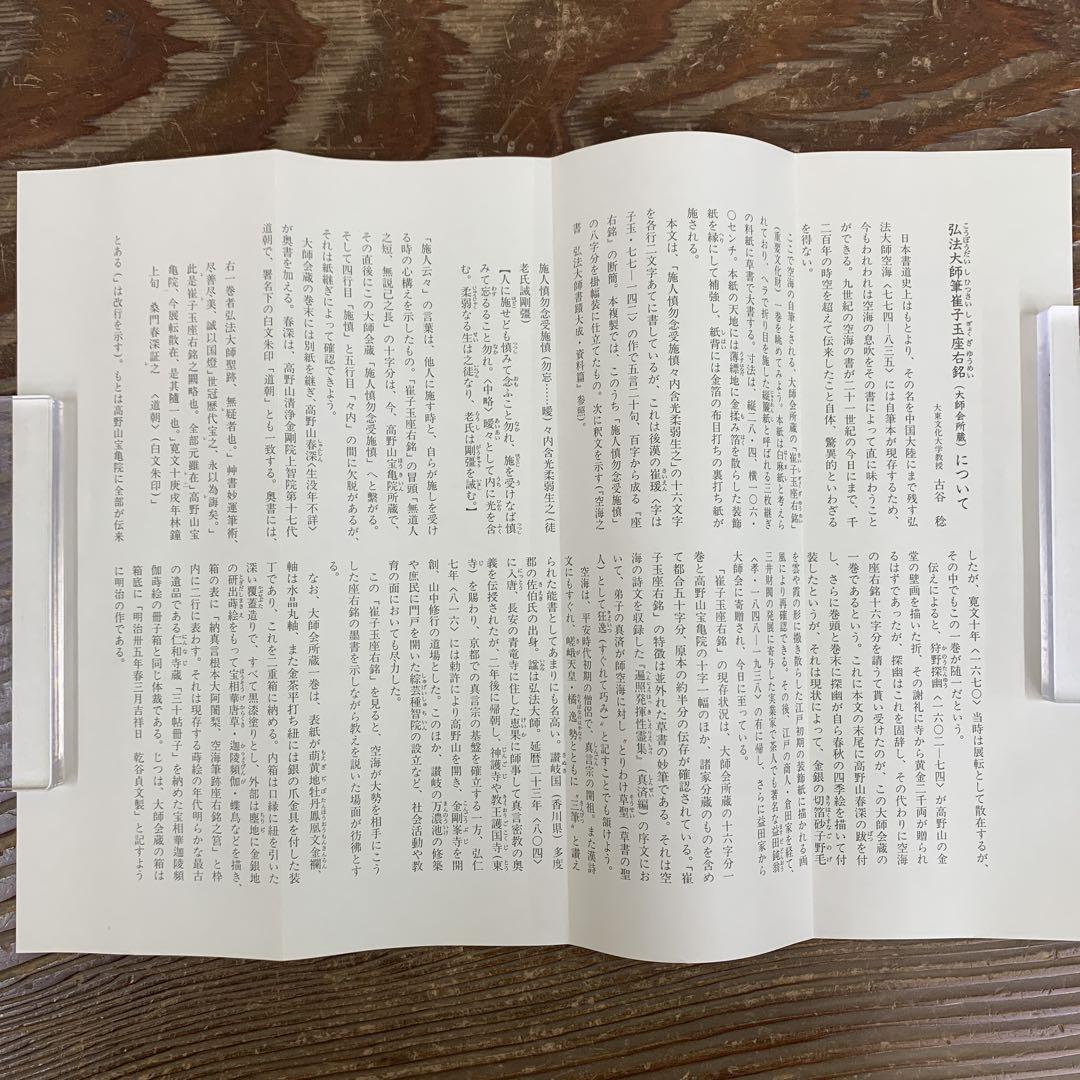 弘法大師筆崔子玉座右銘（大師会所蔵）について
大東文化大学教授　古谷　稔
日本書道史上はもとより、その名を中国大陸にまで残す弘
法大師空海〈七七四-八三五〉には自筆本が現存するため、
今もわれわれは空海の息吹をその書によって直に味わうこと
ができる。九世紀の空海の書が二十一世紀の今日にまで、千
二百年の時空を超えて伝来したこと自体、驚異的といわざる
を得ない。
ここで空海の自筆とされる、大師会所蔵の「崔子玉座右銘」
（重要文化財）一巻を眺めてみよう。本紙は白麻紙と考えら
れており、ヘラで折り目を施した縦簾紙と呼ばれる三枚継ぎ
の料紙に草書で大書する。寸法は、縦二八・四、横一〇六・
〇センチ。本紙の天地には薄縹地に金揉み箔を散らした装飾
紙を縁にして補強し、紙背には金箔の布目打ちの裏打ち紙が
施される。
本文は、「施人慎勿念受施慎々内含光柔弱生之」の十六文字
を各行二文字あてに書しているが、これは後漢の崔瑗〈字は
子玉・七七-一四二〉の作で五言二十句、百字から成る「座
右銘」の断簡。本複製では、このうち「施人慎勿念受施慎」
の八字分を掛幅装に仕立てたもの。次に釈文を示す（『空海之
書　弘法大師書蹟大成・資料篇』参照）。
施人慎勿念受施慎（勿忘……曖）々内含光柔弱生之（徒
老氏誡剛彊）
【人に施せども慎みて念ふこと勿れ、施を受けなば慎
みて忘るること勿れ。〈中略〉曖々として内に光を含
む。柔弱なる生は之徒なり、老氏は剛彊を誡む。】
「施人云々」の言葉は、他人に施す時と、自らが施しを受け
る時の心構えを示したもの。「崔子玉座右銘」の冒頭「無道人
之短、無説己之長」の十字分は、今、高野山宝亀院所蔵で、
その直後にこの大師会蔵「施人慎勿念受施慎」へと繋がる。
そして四行目「施慎」と五行目「々内」の間に欠脱があるが、
それは紙継ぎによって確認できよう。
大師会蔵の巻末には別紙を継ぎ、高野山春深〈生没年不詳〉
が奥書を加える。春深は、高野山清浄金剛院上智院第十七代
道朝で、署名下の白文朱印「道朝」とも一致する。奥書には、
右一巻者弘法大師聖跡、無疑者也。」艸書妙運筆術、
尽善尽美、誠以国燈」世冠歴代宝之、永以為誨矣。」
此是崔子玉座右銘之闕略也。全部元雖在」高野山宝
亀院、今展転散在、是其随一也。」寛文十庚戌年林鐘
上旬　桑門春深証之　〈道朝〉（白文朱印）」
とある（」は改行を示す）。もとは高野山宝亀院に全部が伝来
したが、寛文十年〈一六七〇〉当時は展転として散在するが、
その中でもこの一巻が随一だという。
伝えによると、狩野探幽〈一六〇二-七四〉が高野山の金
堂の壁画を描いた折、その謝礼に寺から黄金二千両が贈られ
るはずであったが、探幽はこれを固辞し、その代わりに空海
の座右銘十六字分を請うて貰い受けたのが、この大師会蔵の
一巻であるという。これに本文の末尾に高野山春深の跋を付
し、さらに巻頭と巻末に探幽が自ら春秋の四季絵を描いて付
装したというが、それは現状によって、金銀の切箔砂子野毛
を雲や霞の形に撒き散らした江戸初期の装飾紙に描かれる画
風により再確認できる。その後、江戸の商人・倉田家を経て、
三井財閥の発展に寄与した実業家で茶人でも著名な益田鈍翁
〈孝・一八四八-一九三八〉の有に帰し、さらに益田家から
大師会に寄贈され、今日に至っている。
「崔子玉座右銘」の現存状況は、大師会所蔵の十六字分一
巻と高野山・宝亀院の十字一幅のほか、諸家分蔵のものを含め
て都合五十字分、原本の約半分の伝存が確認されている。「崔
子玉座右銘」の特徴は並外れた草書の妙筆である。それは空
海の詩文を収録した『遍照発揮性霊集』（真済編）の序文にお
いて、弟子の真済が師空海に対し〝とりわけ草聖（草書の聖
人）として狂逸（すぐれて巧み）〟と記すことでも頷けよう。
空海は、平安時代初期の僧侶で、真言宗の開祖。また漢詩
文にもすぐれ、嵯峨天皇・橘逸勢とともに〝三筆〟と讃え
られた能書としてあまりにも名高い。讃岐国（香川県）多度
郡の佐伯氏の出身。諡は弘法大師。延暦二十三年〈八〇四〉
に入唐、長安の青竜寺に住した恵果に師事して真言密教の奥
義を伝授されたが、二年後に帰朝し、神護寺や教王護国寺（東
寺）を賜わり、京都での真言宗の基盤を確立する一方、弘仁
七年〈八一六〉には勅許により高野山を開き、金剛峯寺を開
創、山中修行の道場とした。このほか、讃岐の万濃池の修築
や庶民に門戸を開いた綜芸種智院の設立など、社会活動や教
育の面においても尽力した。
この「崔子玉座右銘」を見ると、空海が大勢を相手にこう
した座右銘の墨書を示しながら教えを説いた場面が彷彿とす
る。
なお、大師会所蔵一巻は、表紙が萌黄地牡丹鳳凰文金襴、
軸は水晶丸軸、また金茶平打ち紐には銀の爪金具を付した装
丁であり、これを二重箱に納める。内箱は口縁に紐を引いた
深い覆蓋造りで、すべて黒漆塗りとし、外部は塵地に金銀地
の研出蒔絵をもって宝相華唐草・迦陵頻伽・蝶鳥などを描き、
箱の表に「納真言根本大阿闍梨、空海筆跡座右銘之筥」と枠
内に二行に表わす。それは現存する蒔絵の年代明らかな最古
の遺品である仁和寺蔵「三十帖冊子」を納めた宝相華迦陵頻
伽蒔絵の冊子箱と同じ体裁である。じつは、大師会蔵の箱は
箱底に「明治卅五年春三月吉祥日　乾谷貞文製」と記すよう
に明治の作である。